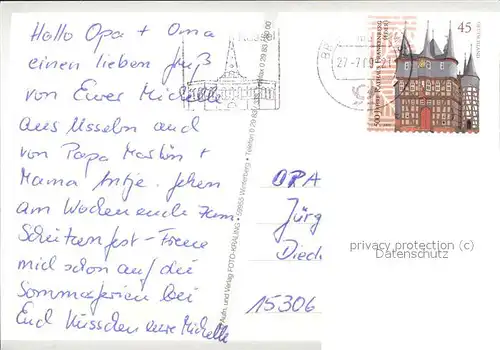 Hallo Opa + Oma
einen lieben Gruß
von Eurer Michelle
aus Usseln und
von Papa Martin +
Mama Antje. Gehen
am Wochenende zum
Schützenfest - Freue
mich schon auf die
Sommerferien bei
Euch Küsschen eure Michelle
Aufn. und Verlag FOTO-KRÄLING • 59955 Winterberg • Telefon 0 29 83
27-7
45
DEUTSCHLAND
500 Jahre Rathaus Frankenberg (Eder)
OPA
Jürg
Diech
15306
privacy protection (c)
Datenschutz